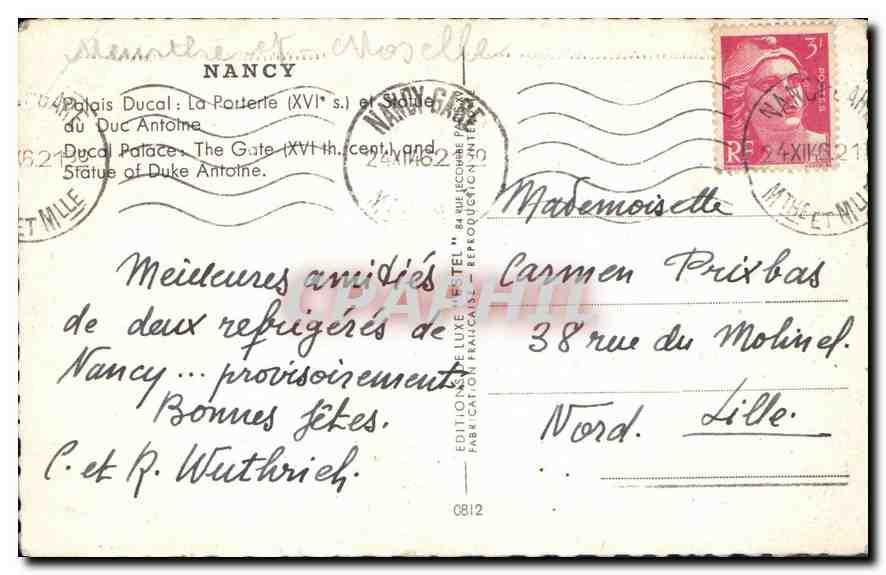 Meurthe et Moselle
NANCY
Palais Ducal : La Porterie (XVIe s.) et Statue
du Duc Antoine
Ducal Palace : The Gate (XVI th. cent.) and
Statue of Duke Antoine.
Meilleures amitiés
de deux refrigérés de
Nancy... provisoirement
Bonnes fêtes.
C. et R. Wuthrich.
EDITIONS DE LUXE "ESTEL" 84 RUE LECOURBE PARIS
FABRICATION FRANÇAISE - REPRODUCTION INTERDITE
0812
NANCY-GARE
24 XII 46 21
3F
POSTES
RF
NANCY-GARE
24 XII 46 21
MTHE ET MLLE
GARE
46 21
ET MLLE
Mademoiselle
Carmen Prixbas
38 rue du Molinel.
Nord. Lille.
CPAPHIL